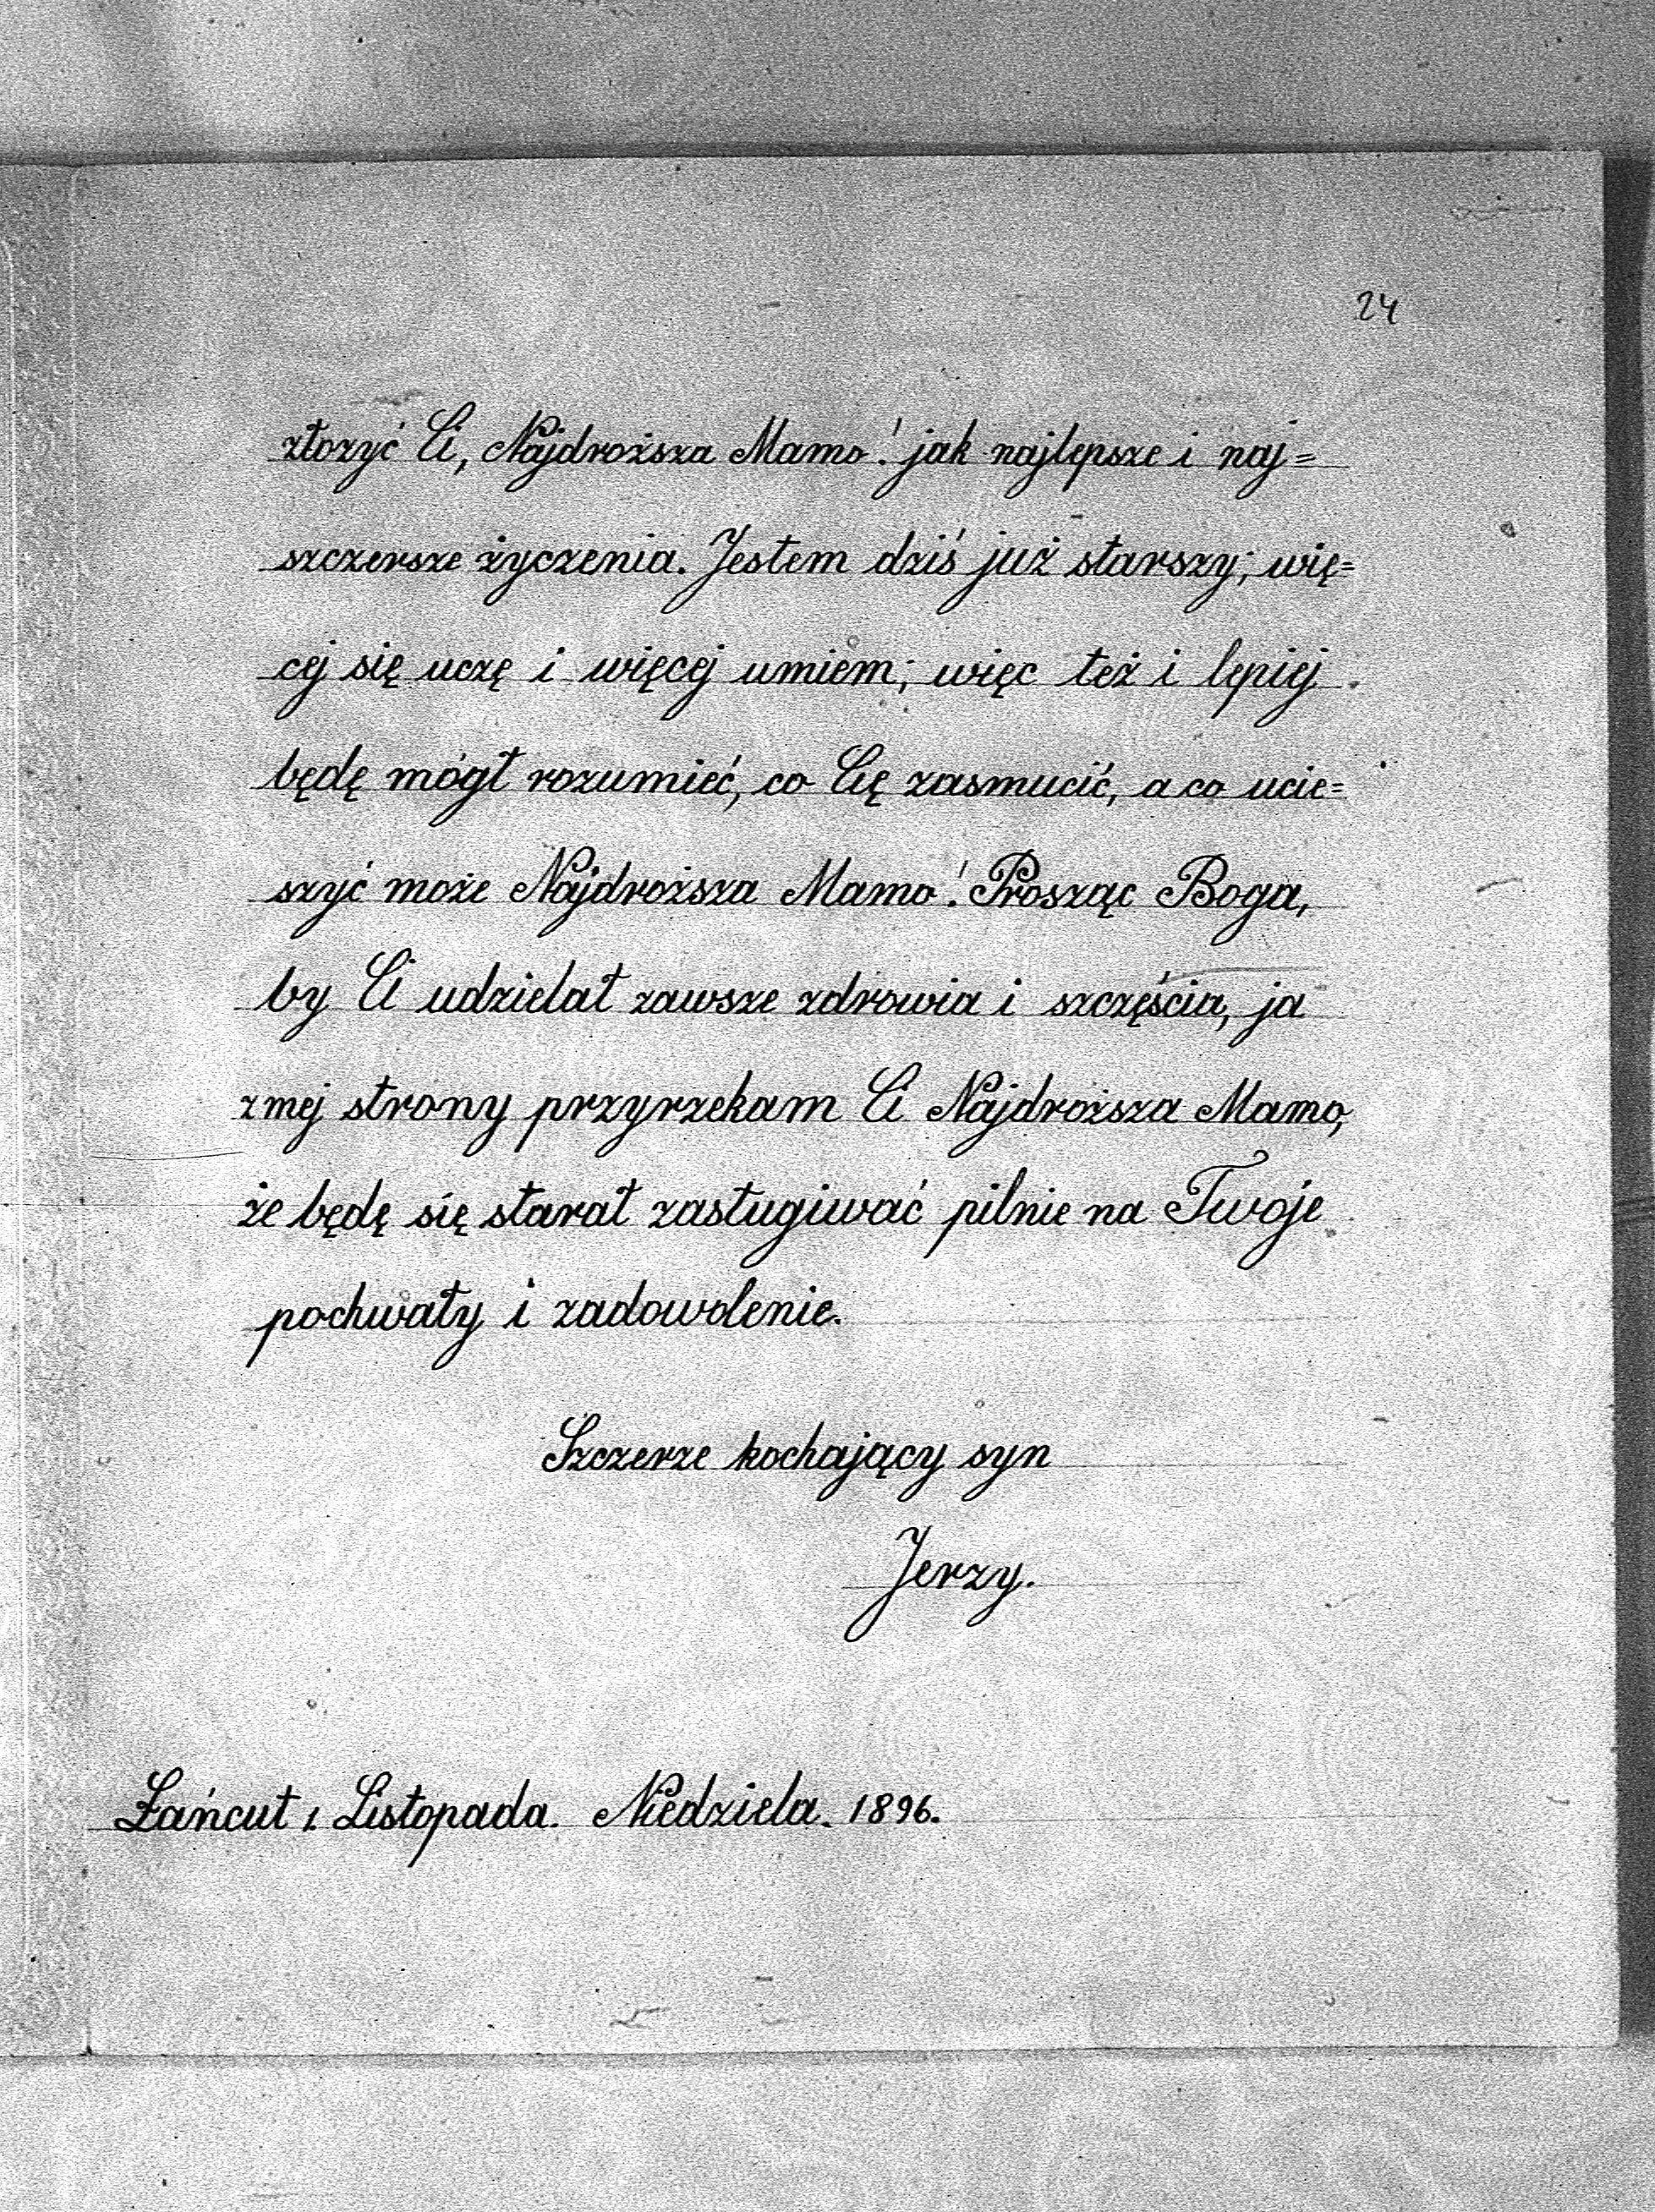 24
złożyć Ci, Najdroższa Mamo! jak najlepsze i naj=
szczersze życzenia. Jestem dziś już starszy; wię=
cej się uczę i więcej umiem; więc też i lepiej
będę mógł rozumieć, co Cię zasmucić, a co ucie=
szyć może Najdroższa Mamo! Prosząc Boga,
by Ci udzielał zawsze zdrowia i szczęścia, ja
z mej strony przyrzekam Ci Najdroższa Mamo,
że będę się starał zasługiwać pilnie na Twoje
pochwały i zadowolenie.
Szczerze kochający syn
Jerzy.
Łańcut 1. Listopada. Niedziela. 1896.